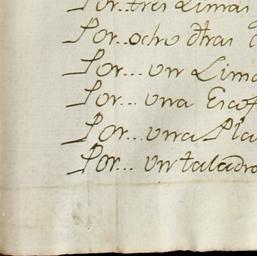 Por..tres Limas
Por..ocho dtras
Por... un Lima
Por... una Escof
Por... una Pla
Por... un taladro